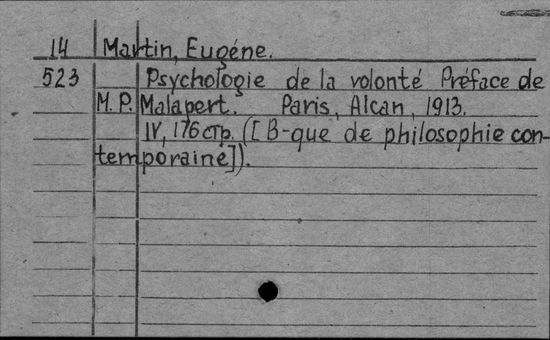 14 Martin, Eugéne.
523 Psychologie de la volonté Préface de
M. P. Malapert. Paris, Alcan, 1913.
IV, 176 стр. ([B-que de philosophie con-
temporaine]).